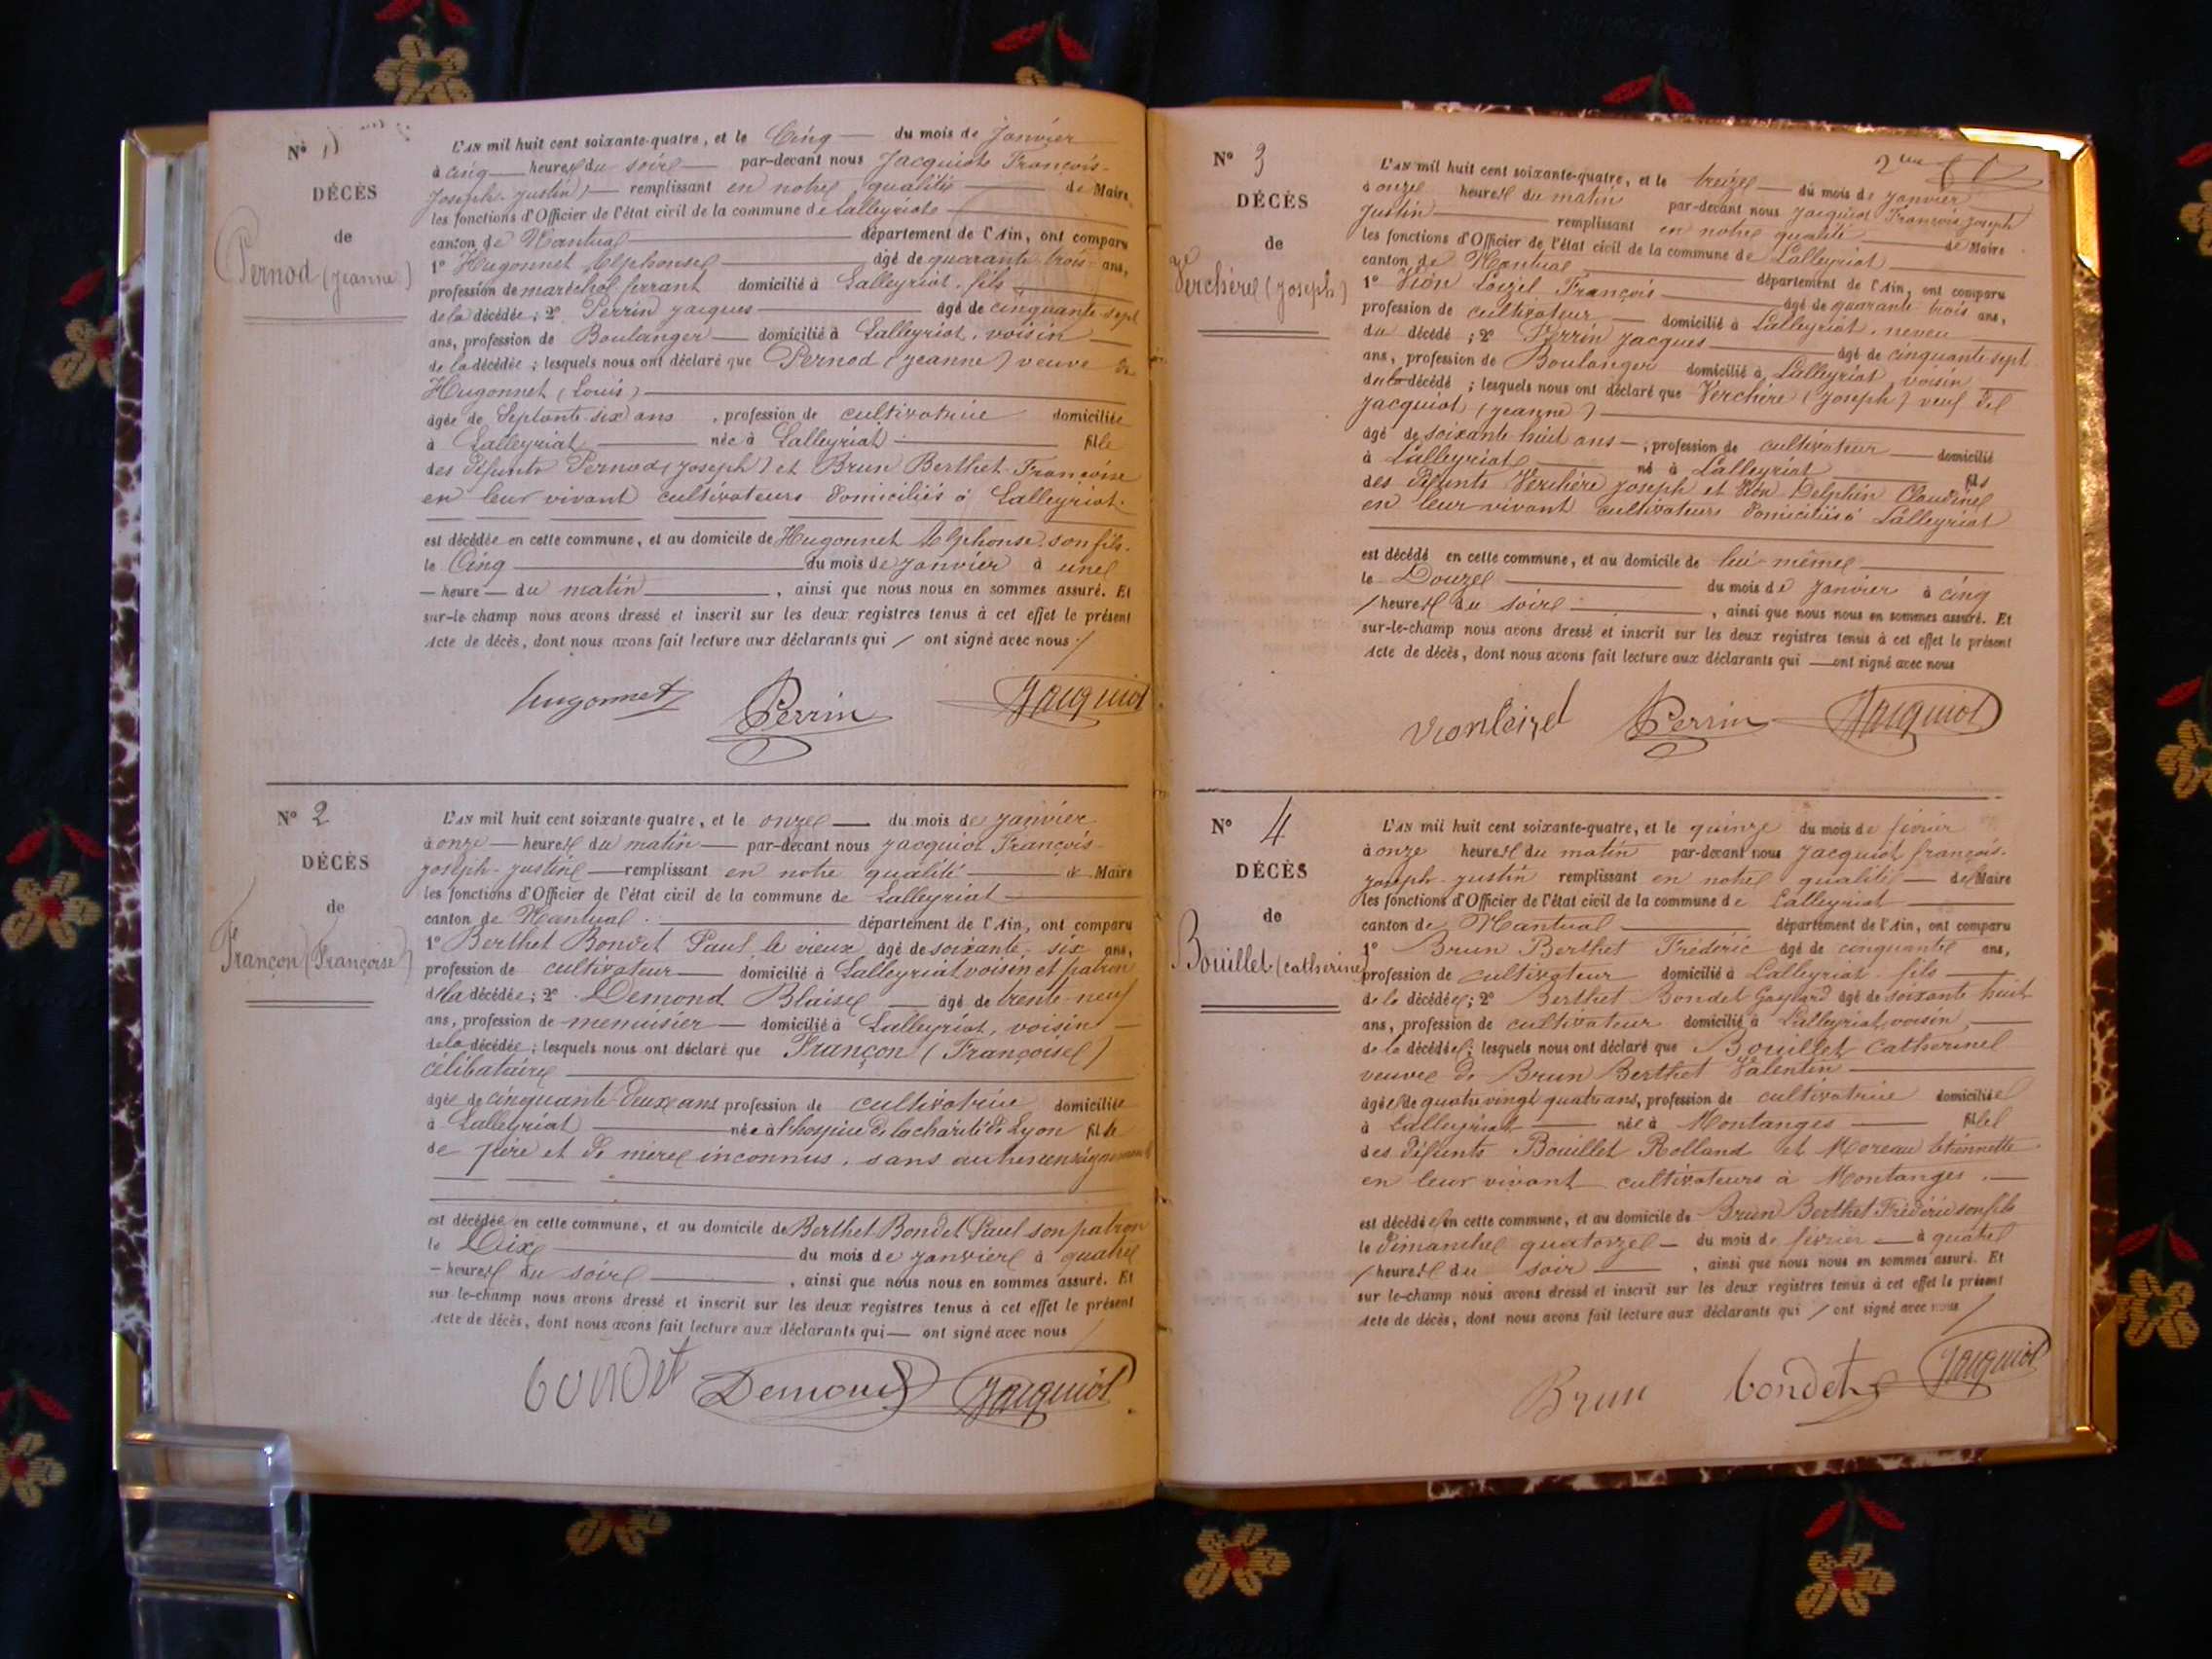 N° 1
DÉCÈS
de
Pernod (Jeanne)
L'AN mil huit cent soixante-quatre, et le Cinq du mois de Janvier
à cinq heures du soir par-devant nous Jacquiot François-
Joseph-Justin remplissant en notre qualité de Maire
les fonctions d'Officier de l'état civil de la commune de Lalleyriat
canton de Nantua département de l'Ain, ont comparu
1° Hugonnet Alphonse âgé de quarante trois ans,
profession de maréchal ferrant domicilié à Lalleyriat, fils
de la décédée; 2° Perrin Jacques âgé de cinquante-sept
ans, profession de Boulanger domicilié à Lalleyriat, voisin
de la décédée; lesquels nous ont déclaré que Pernod (Jeanne) veuve de
Hugonnet (Louis)
âgée de Septante-six ans, profession de cultivatrice domiciliée
à Lalleyriat née à Lalleyriat fille
des défunts Pernod (Joseph) et Brun Berthet Françoise
en leur vivant cultivateurs domiciliés à Lalleyriat.
est décédée en cette commune, et au domicile de Hugonnet Alphonse, son fils.
le Cinq du mois de Janvier à une
heure du matin, ainsi que nous nous en sommes assuré. Et
sur-le-champ nous avons dressé et inscrit sur les deux registres tenus à cet effet le présent
Acte de décès, dont nous avons fait lecture aux déclarants qui ont signé avec nous
hugonnet Perrin Jacquiot
N° 2
DÉCÈS
de
Françon (Françoise)
L'AN mil huit cent soixante-quatre, et le onze du mois de Janvier
à onze heures du matin par-devant nous Jacquiot François-
Joseph-Justin remplissant en notre qualité de Maire
les fonctions d'Officier de l'état civil de la commune de Lalleyriat
canton de Nantua département de l'Ain, ont comparu
1° Berthet Bondet Paul, le vieux âgé de soixante-six ans,
profession de cultivateur domicilié à Lalleyriat voisin et patron
de la décédée; 2° Demond Blaise âgé de trente-neuf
ans, profession de menuisier domicilié à Lalleyriat, voisin
de la décédée; lesquels nous ont déclaré que Françon (Françoise)
célibataire
âgée de cinquante-deux ans profession de cultivatrice domiciliée
à Lalleyriat née à l'hospice de la charité de Lyon fille
de père et de mère inconnus, sans autre renseignement
est décédée en cette commune, et au domicile de Berthet Bondet Paul son patron
le Dix du mois de Janvier à quatre
heures du soir, ainsi que nous nous en sommes assuré. Et
sur-le-champ nous avons dressé et inscrit sur les deux registres tenus à cet effet le présent
Acte de décès, dont nous avons fait lecture aux déclarants qui ont signé avec nous
bondet Demond Jacquiot
2me
N° 3
DÉCÈS
de
Verchère (Joseph)
L'AN mil huit cent soixante-quatre, et le treize du mois de Janvier
à onze heures du matin par-devant nous Jacquiot François Joseph
Justin remplissant en notre qualité de Maire
les fonctions d'Officier de l'état civil de la commune de Lalleyriat
canton de Nantua département de l'Ain, ont comparu
1° Vion Loizel François âgé de quarante-trois ans,
profession de cultivateur domicilié à Lalleyriat, neveu
du décédé; 2° Perrin Jacques âgé de cinquante-sept
ans, profession de Boulanger domicilié à Lalleyriat, voisin
du décédé; lesquels nous ont déclaré que Verchère (Joseph) veuf de
Jacquiot (Jeanne)
âgé de soixante-huit ans; profession de cultivateur domicilié
à Lalleyriat né à Lalleyriat fils
des défunts Verchère Joseph et Vion Delphin Claudine
en leur vivant cultivateurs domiciliés à Lalleyriat
est décédé en cette commune, et au domicile de lui-même
le Douze du mois de Janvier à cinq
heures du soir, ainsi que nous nous en sommes assuré. Et
sur-le-champ nous avons dressé et inscrit sur les deux registres tenus à cet effet le présent
Acte de décès, dont nous avons fait lecture aux déclarants qui ont signé avec nous
vionloizel Perrin Jacquiot
N° 4
DÉCÈS
de
Bouillet (Catherine)
L'AN mil huit cent soixante-quatre, et le quinze du mois de février
à onze heures du matin par-devant nous Jacquiot françois-
Joseph-Justin remplissant en notre qualité de Maire
les fonctions d'Officier de l'état civil de la commune de Lalleyriat
canton de Nantua département de l'Ain, ont comparu
1° Brun Berthet Frédéric âgé de cinquante ans,
profession de cultivateur domicilié à Lalleyriat fils
de la décédée; 2° Berthet Bondet Gaspard âgé de soixante huit
ans, profession de cultivateur domicilié à Lalleyriat, voisin
de la décédée; lesquels nous ont déclaré que Bouillet Catherine
veuve de Brun Berthet Valentin
âgée de quatre vingt quatre ans, profession de cultivatrice domiciliée
à Lalleyriat née à Montanges fille
des défunts Bouillet Rolland et Moreau Etiennette
en leur vivant cultivateurs à Montanges.
est décédée en cette commune, et au domicile de Brun Berthet Frédéric son fils
le dimanche quatorze du mois de février à quatre
heures du soir, ainsi que nous nous en sommes assuré. Et
sur le-champ nous avons dressé et inscrit sur les deux registres tenus à cet effet le présent
Acte de décès, dont nous avons fait lecture aux déclarants qui ont signé avec nous
Brun bondet Jacquiot